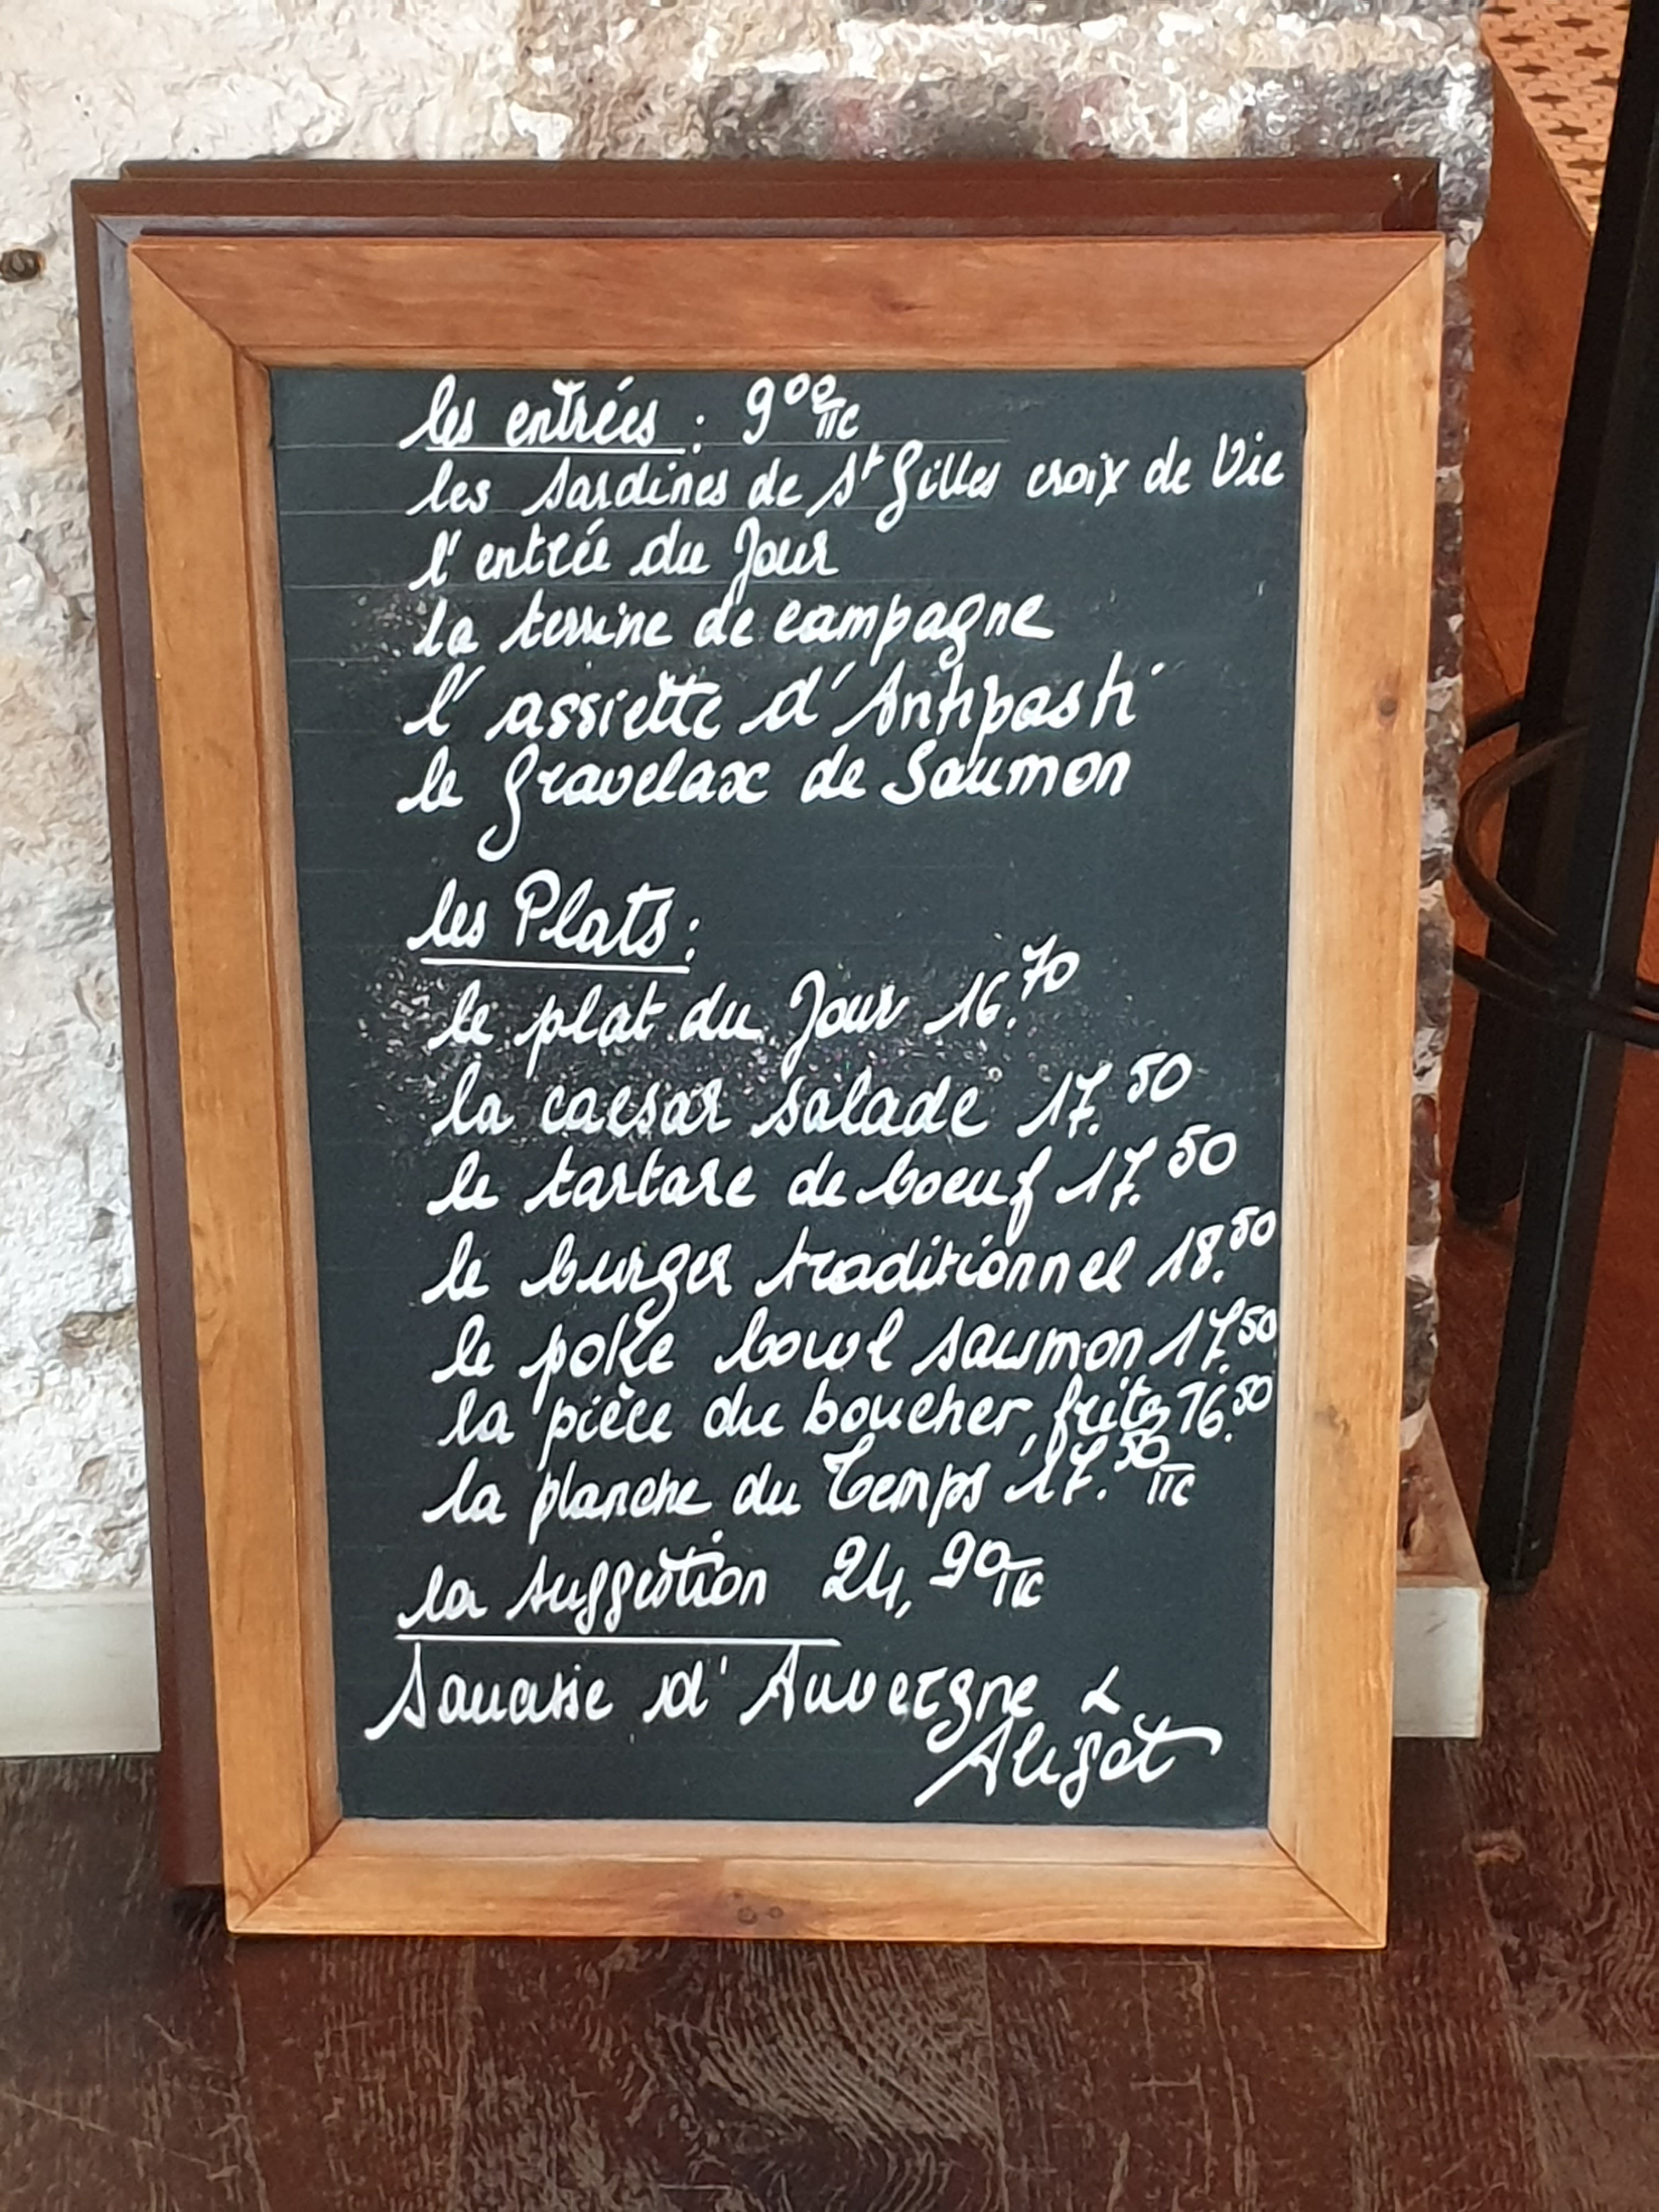 les entrées : 9⁰⁰ TTC
les sardines de St Gilles croix de Vie
l'entrée du Jour
la terrine de campagne
l'assiette d'Antipasti
le gravelax de Saumon
les Plats :
le plat du Jour 16.⁷⁰
la caesar salade 17.⁵⁰
le tartare de boeuf 17.⁵⁰
le burger traditionnel 18.⁵⁰
le poke bowl saumon 17.⁵⁰
la pièce du boucher, frites 16.⁵⁰
la planche du Temps 17.⁵⁰ TTC
la suggestion 24,⁹⁰ TTC
Saucisse d'Auvergne &
Aligot